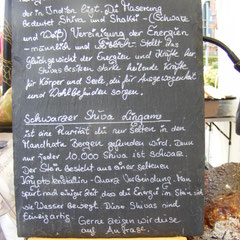 der in Indien liegt. Die Maserung
bedeutet Shiva und Shakti – (Schwarz
und Weiß) Vereinigung der Energien
– männlich und Stellt das
Gleichgewicht der Energien und Kräfte her.
Shivas Besitzen starke heilende Kräfte
für Körper und Seele, die für Ausgewogenheit
und Wohlbefinden sorgen.
Schwarzer Shiva Lingam:
ist eine Rarität die nur selten in den
Mandhata Bergen gefunden wird. Denn
nur jeder 10.000 Shiva ist schwarz.
Der Stein besteht aus einer seltenen
Kryptokristallin-Quarz Verbindung. Man
spürt nach einiger Zeit das die Energie im Stein sich
wie Wasser bewegt. Diese Shivas sind
Einzigartig. Gerne zeigen wir diese
auf Anfrage.